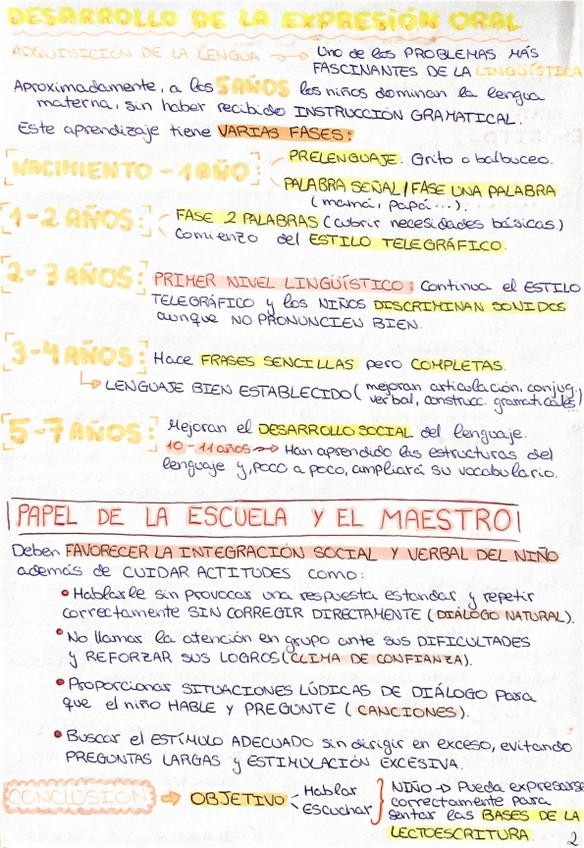 DESARROLLO DE LA EXPRESIÓN ORAL
ADQUISICIÓN DE LA LENGUA → Uno de los PROBLEMAS MÁS
FASCINANTES DE LA LINGÜÍSTICA
Aproximadamente, a los 5 AÑOS los niños dominan la lengua
materna, sin haber recibido INSTRUCCIÓN GRAMATICAL.
Este aprendizaje tiene VARIAS FASES:
NACIMIENTO - 1 AÑO:
PRELENGUAJE. Grito o balbuceo.
PALABRA SEÑAL/FASE UNA PALABRA
(mamá, papá...).
1-2 AÑOS:
FASE 2 PALABRAS (cubrir necesidades básicas)
Comienzo del ESTILO TELEGRÁFICO.
2-3 AÑOS: PRIMER NIVEL LINGÜÍSTICO: Continua el ESTILO
TELEGRÁFICO y los NIÑOS DISCRIMINAN SONIDOS
aunque NO PRONUNCIEN BIEN.
3-4 AÑOS: Hace FRASES SENCILLAS pero COMPLETAS.
↳ LENGUAJE BIEN ESTABLECIDO (mejoran articulación, conjug.
verbal, construcc. gramaticales)
5-7 AÑOS: Mejoran el DESARROLLO SOCIAL del lenguaje.
10-11 años → Han aprendido las estructuras del
lenguaje y, poco a poco, ampliará su vocabulario.
PAPEL DE LA ESCUELA Y EL MAESTRO
Deben FAVORECER LA INTEGRACIÓN SOCIAL Y VERBAL DEL NIÑO
además de CUIDAR ACTITUDES como:
• Hablarle sin provocar una respuesta estandar y repetir
correctamente SIN CORREGIR DIRECTAMENTE (DIÁLOGO NATURAL).
• No llamar la atención en grupo ante sus DIFICULTADES
y REFORZAR SUS LOGROS (CLIMA DE CONFIANZA).
• Proporcionar SITUACIONES LÚDICAS DE DIÁLOGO para
que el niño HABLE Y PREGUNTE (CANCIONES).
• Buscar el ESTÍMULO ADECUADO sin dirigir en exceso, evitando
PREGUNTAS LARGAS y ESTIMULACIÓN EXCESIVA.
CONCLUSIÓN → OBJETIVO
Hablar
Escuchar
NIÑO → Pueda expresarse
correctamente para
sentar las BASES DE LA
LECTOESCRITURA.
2